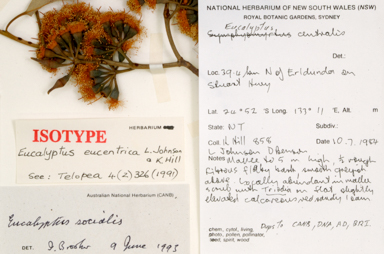 NATIONAL HERBARIUM OF NEW SOUTH WALES (NSW)
ROYAL BOTANIC GARDENS, SYDNEY
Eucalyptus
centralis
Det.:
Loc. 39.0 km N of Erldunda on
Stuart Hwy
Lat. 24° 52 S Long. 133° 11 E Alt. m
State: NT Subdiv.:
Coll. K. Hill 858 Date 10.7.1984
L. Johnson D Benson
Notes Mallee to 5 m high, rough
fibrous flaky bark smooth
above Locally abundant in mallee
scrub with Triodia on flat slightly
elevated calcareous red sandy loam
chem., cytol., living, Dups to CANB, DNA, AD, BRI.
photo, pollen, pollinator,
seed, spirit, wood
HERBARIUM
ISOTYPE
Eucalyptus eucentrica L. Johnson
& K. Hill
See: Telopea 4(2) 326 (1991)
Australian National Herbarium (CANB)
Eucalyptus socialis
DET. I. Brooker 9 June 1993